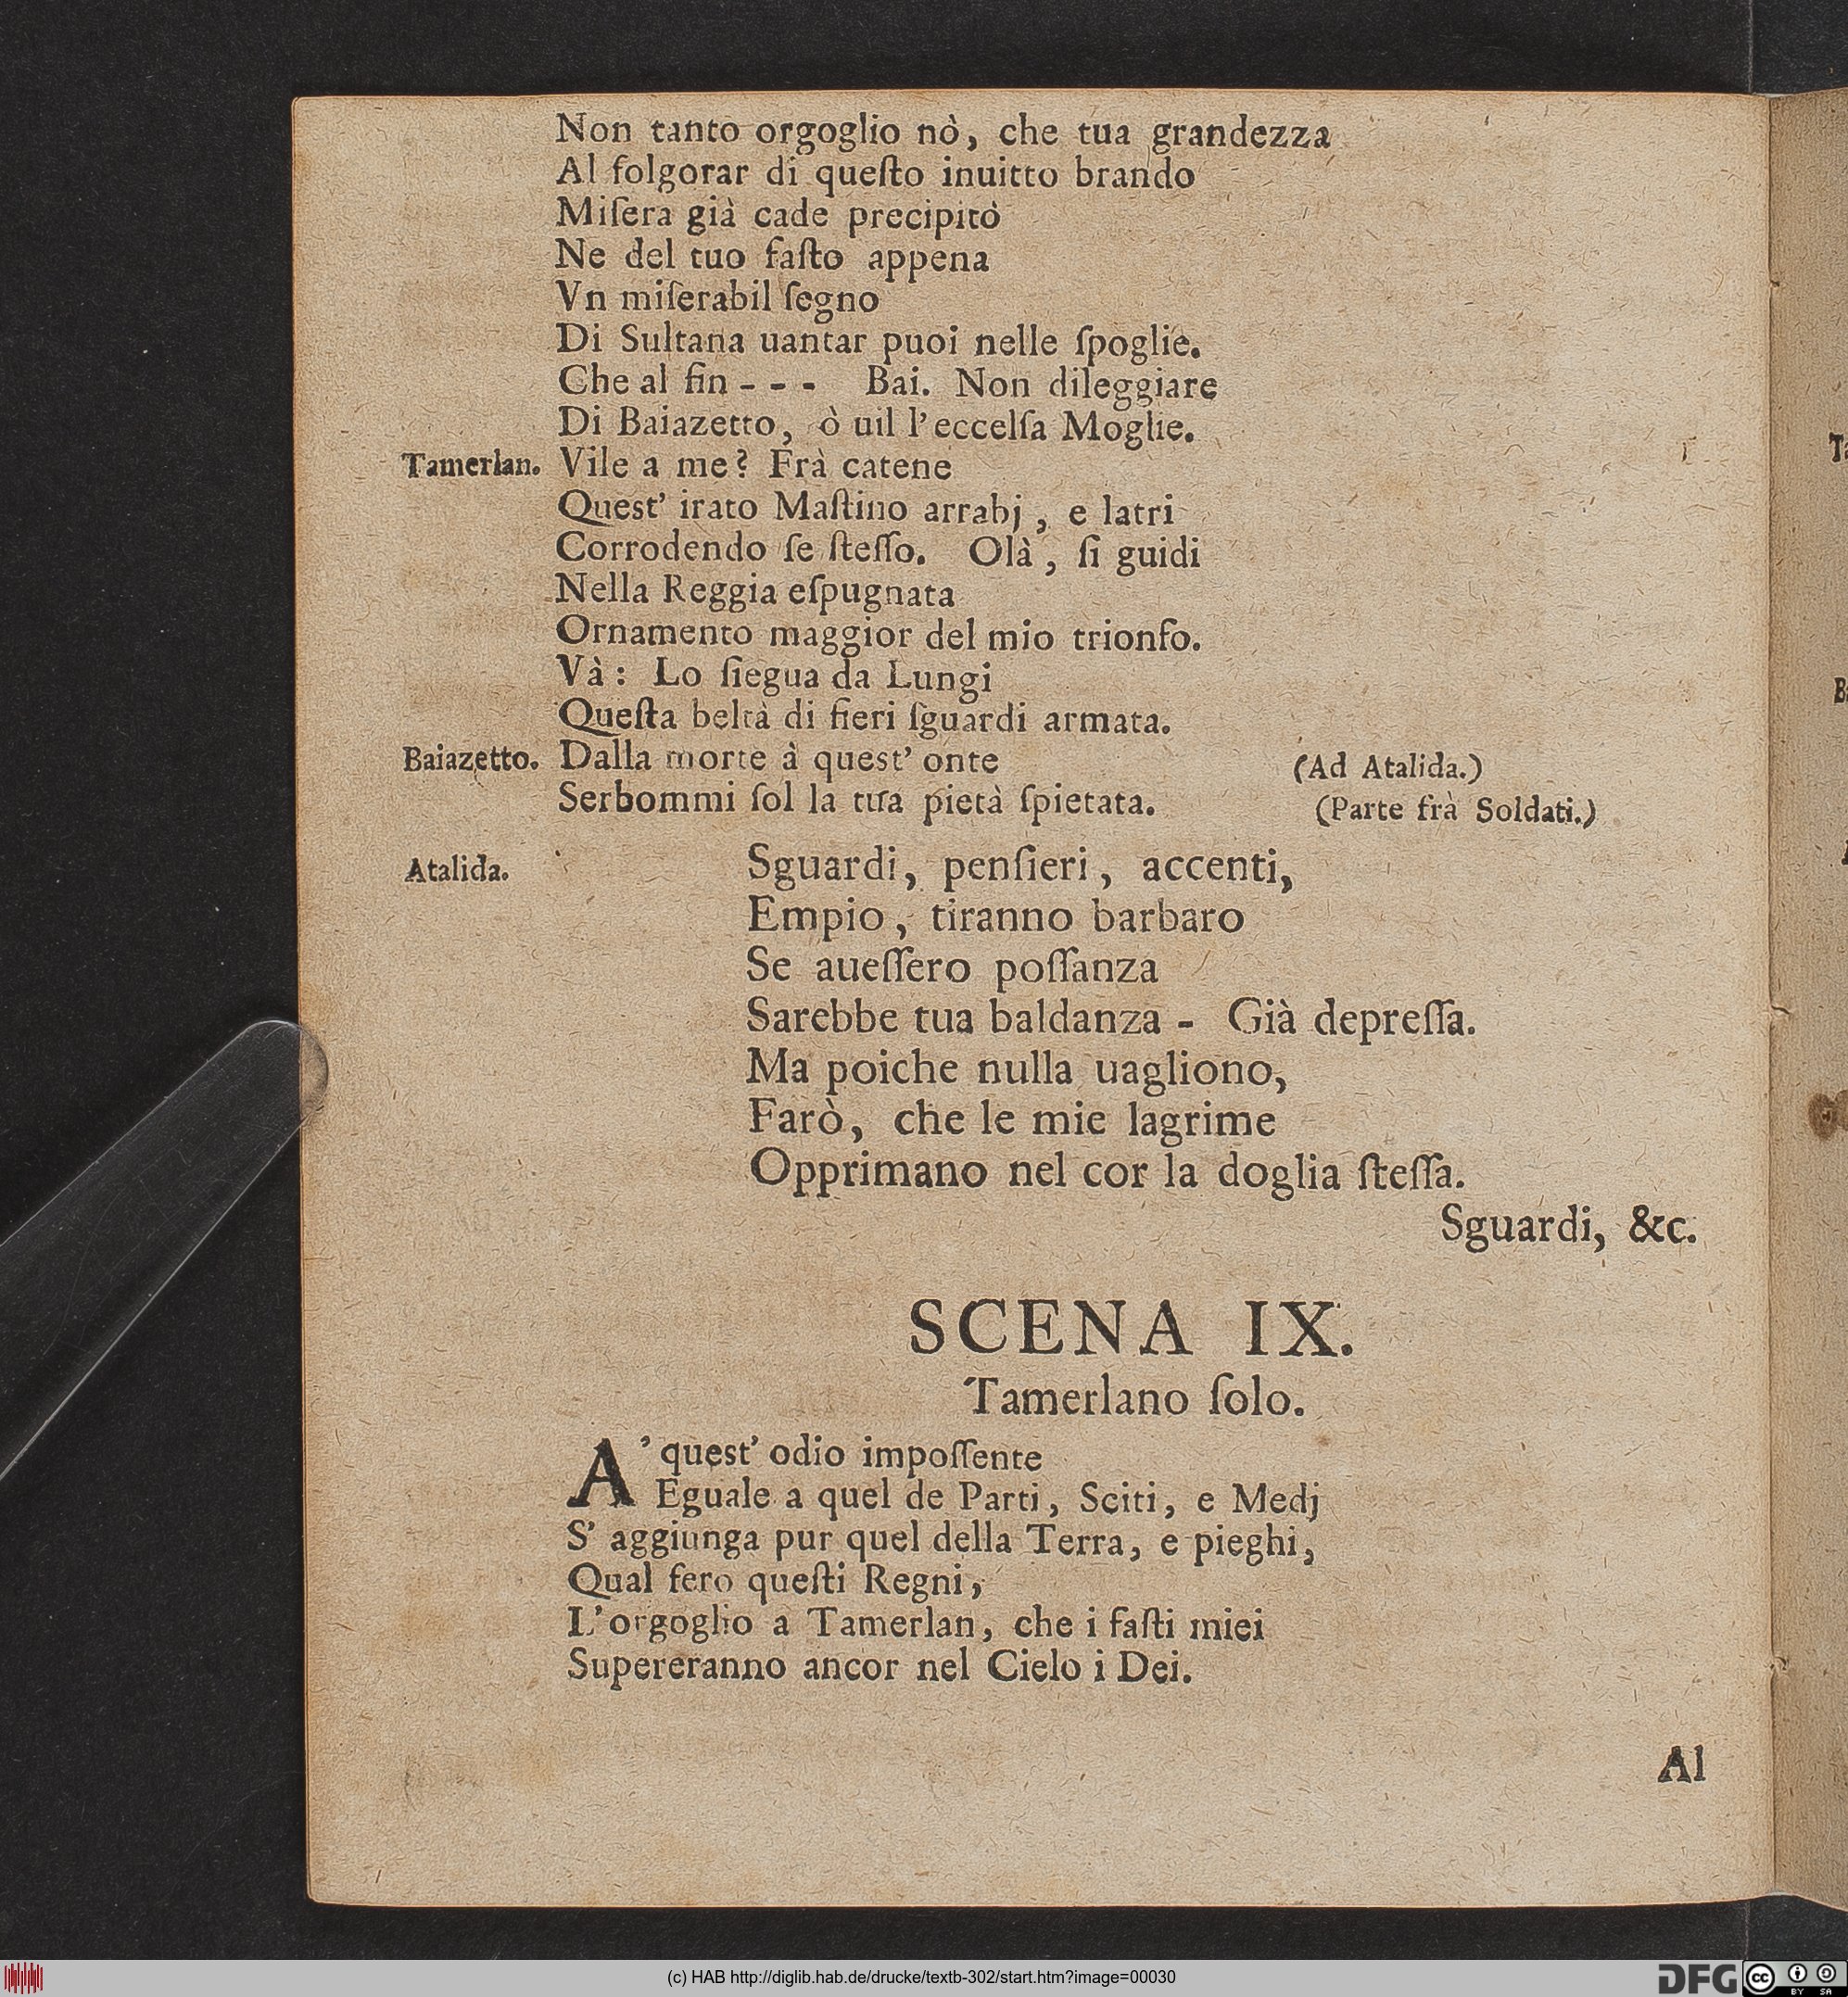 Non tanto orgoglio nò, che tua grandezza
Al folgorar di queſto inuitto brando
Miſera già cade precipitò
Ne del tuo faſto appena
Vn miſerabil ſegno
Di Sultana uantar puoi nelle ſpoglie.
Che al fin - - - Bai. Non dileggiare
Di Baiazetto, ò uil l'eccelſa Moglie.
Tamerlan. Vile a me? Frà catene
Quest' irato Maſtino arrabj, e latri
Corrodendo ſe ſteſſo. Olà, ſi guidi
Nella Reggia eſpugnata
Ornamento maggior del mio trionfo.
Và: Lo ſiegua da Lungi
Queſta beltà di fieri ſguardi armata.
Baiazetto. Dalla morte à quest' onte (Ad Atalida.)
Serbommi ſol la tua pietà ſpietata. (Parte frà Soldati.)
Atalida. Sguardi, penſieri, accenti,
Empio, tiranno barbaro
Se aueſſero poſſanza
Sarebbe tua baldanza - Già depreſſa.
Ma poiche nulla uagliono,
Farò, che le mie lagrime
Opprimano nel cor la doglia ſteſſa.
Sguardi, &c.
SCENA IX.
Tamerlano ſolo.
A' quest' odio impoſſente
Eguale a quel de Parti, Sciti, e Medj
S' aggiunga pur quel della Terra, e pieghi,
Qual fero queſti Regni,
L'orgoglio a Tamerlan, che i faſti miei
Supereranno ancor nel Cielo i Dei.
Al
(c) HAB http://diglib.hab.de/drucke/textb-302/start.htm?image=00030
DFG
cc BY SA